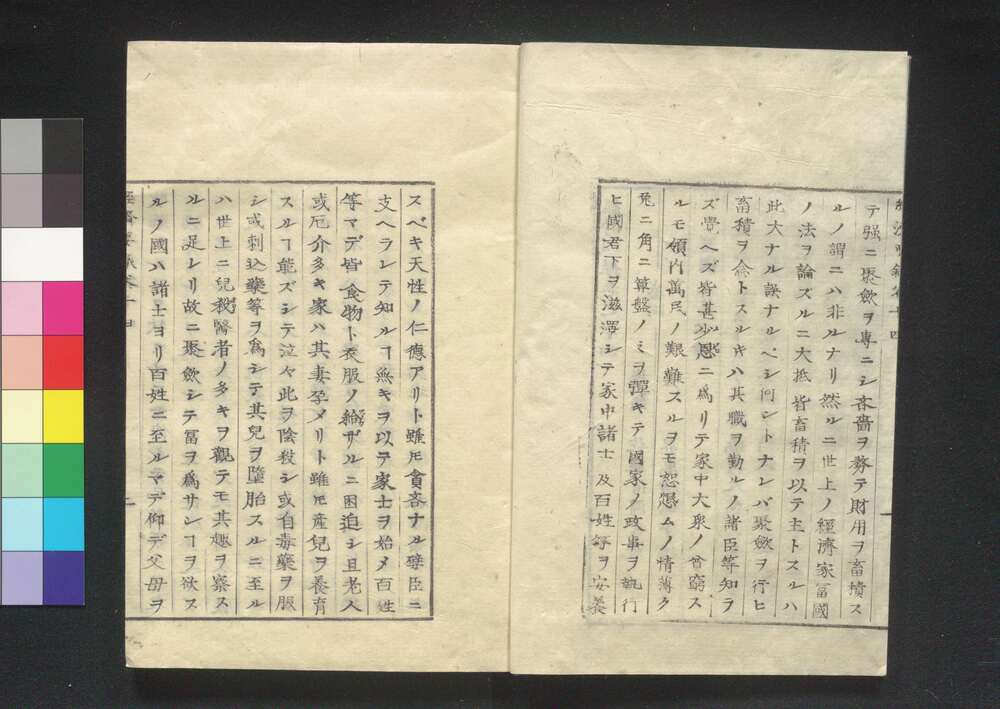 テ强ニ聚斂ヲ專ニシ吝嗇ヲ務テ財用ヲ畜積ス
ルノ謂ニハ非ルナリ然ルニ世上ノ經濟家冨國
ノ法ヲ論ズルニ大抵皆畜積ヲ以テ主トスルハ
此大ナル誤ナルベシ何ントナレバ聚斂ヲ行ヒ
畜積ヲ念トスルキハ其職ヲ勤ルノ諸臣等知ラ
ズ覺ヘズ皆甚少恩ニ爲リテ家中大衆ノ曾窮ス
ルモ領内萬民ノ艱難スルヲモ恕愍ムノ情薄ク
兎ニ角ニ算盤ノミヲ彈キテ國家ノ政事ヲ執行
ヒ國君下ヲ滋澤シテ家中諸士及百姓等ヲ安養
スベキ天性ノ仁德アリト雖モ貪吝ナル孽臣ニ
支ヘラレテ知ルヿ無キヲ以テ家士ヲ始メ百姓
等マデ皆食物ト衣服ノ給ザルニ困迫シ且老人
或厄介多キ家ハ其妻孕メリト雖モ産兒ヲ養育
スルヿ能ズシテ泣々此ヲ陰殺シ或自毒藥ヲ服
シ或刺込藥等ヲ爲シテ其兒ヲ墮胎スルニ至ル
ハ世上ニ兒殺醫者ノ多キヲ觀テモ其趣ヲ察ス
ルニ足レリ故ニ聚斂シテ冨ヲ爲サンヿヲ欲ス
ルノ國ハ諸士ヨリ百姓ニ至ルマデ仰デ父母ヲ